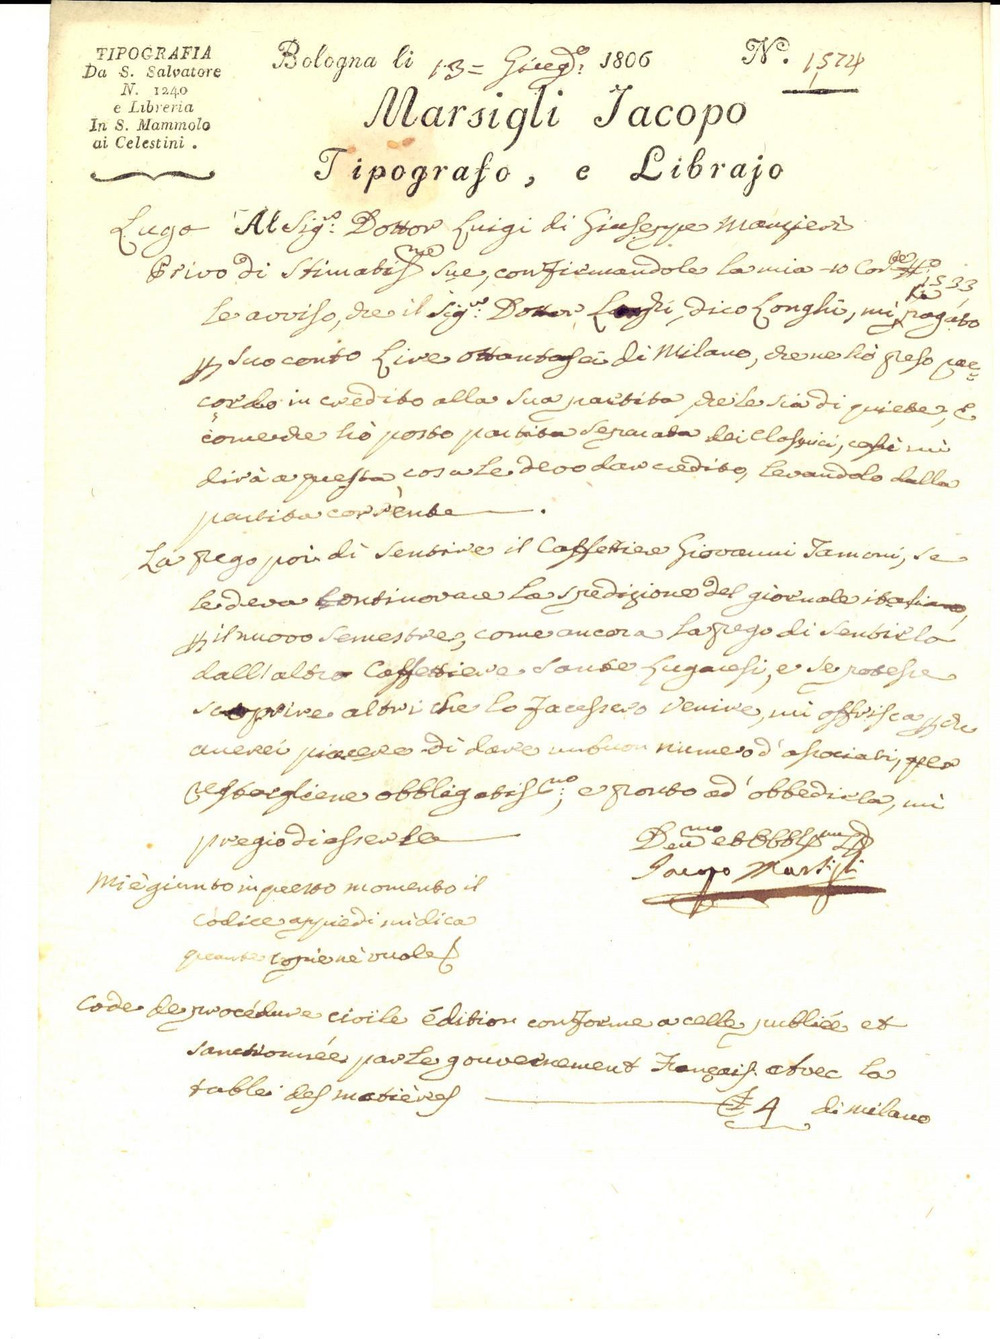 TIPOGRAFIA
Da S. Salvatore
N. 1240
e Libreria
In S. Mammolo
ai Celestini .
Bologna li 13= Giugo: 1806
No. 1574
Marsigli Jacopo
Tipografo, e Librajo
Lugo Al Sigr. Dottor Luigi di Giuseppe Manzieri
Privo di Stimatissme Sue, confirmandole la mia 10 Core No 1533
le avviso, che il Sigr. Dottor, dico Longhi, mi ha pagato
p suo conto Lire ottantasei di Milano, che ne hò preso rac=
cordo in credito alla sua partita, che le sia di quiete, E
come che hò posto partita separata dei Classici, così mi
dirà a questa cosa le devo dar credito, levandolo dalla
partita corrente.
La prego poi di sentire il Caffettiere Giovanni Tamoni, se
le devo continovare la spedizione del giornale italiano,
p il nuovo semestre, come ancora la prego di sentirla
dall'altro Caffettiere Sante Lugaresi, e se potesse
scoprire altri che lo facessero venire, mi offrisca p che
averei piacere di dare un buon numero d'associati, per
restargliene obbligatissmo; e pronto ad' obbedirla, mi
pregio di esserle
Devmo et Obblmo
Jacopo Marsigli
Mi è giunto in questo momento il
Codice appiedi, mi dica
quante copie nè vuole
Code de procédure civile édition conforme a celle publiée et
sanctionnée par le gouvernement Français avec la
table des matières £ 4 di Milano